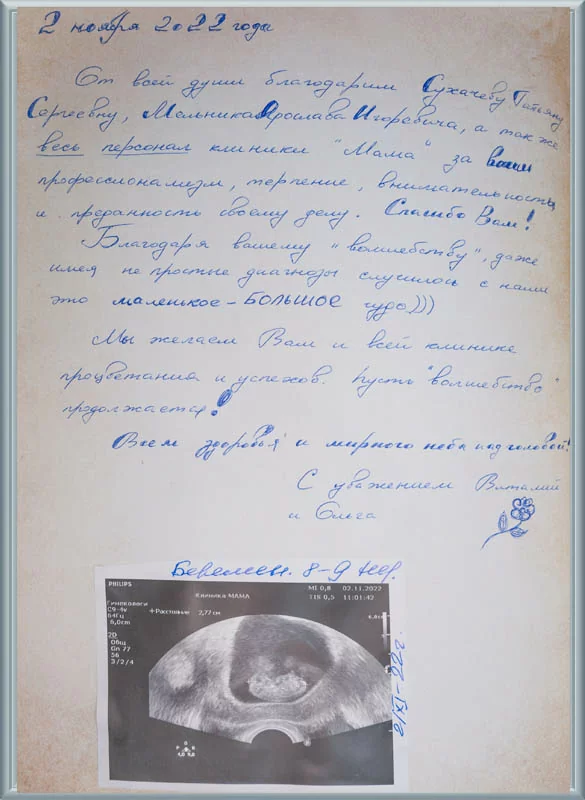 2 ноября 2022 года
От всей души благодарим Сухачеву Татьяну
Сергеевну, Мельника Ярослава Игоревича, а так же
весь персонал клиники "Мама" за ваш
профессионализм, терпение, внимательность
и преданность своему делу. Спасибо Вам!
Благодаря вашему "волшебству", даже
имея не простые диагнозы случилось с нами
это маленькое - БОЛЬШОЕ чудо)))
Мы желаем Вам и всей клинике
процветания и успехов. Пусть "волшебство"
продолжается!
Всем здоровья и мирного неба над головой!
С уважением Виталий
и Ольга
Беремен. 8-9 нед.
PHILIPS
Клиника МАМА
MI 0,8 02.11.2022
TIS 0,5 11:01:42
Гинекологи
C9-4v
64Гц
6,0cm
+Расстояние 2,77 см
2D
Общ
Gn 77
56
3/2/4
2/XI-22г.